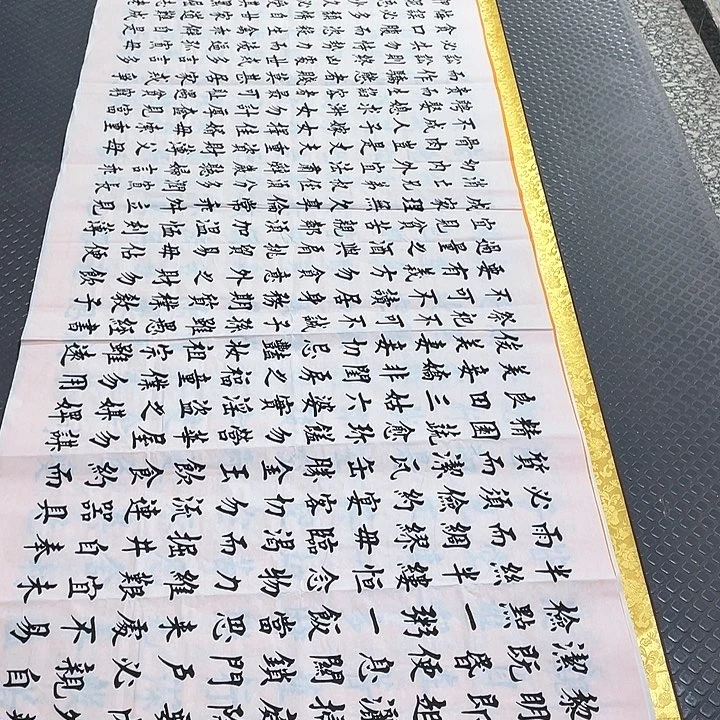 黎明即起灑掃庭除要内外整
潔既昏便息關鎖門户必親自
檢點一粥一飯當思來處不易
半絲半縷恒念物力維艱宜未
雨而綢繆毋臨渴而掘井自奉
必須儉約宴客切勿流連器具
質而潔瓦缶勝金玉飲食約而
精園蔬愈珍饈勿營華屋勿謀
良田三姑六婆實淫盜之媒婢
美妾嬌非閨房之福童僕勿用
俊美妻妾切忌豔妝祖宗雖遠
祭祀不可不誠子孫雖愚經書
不可不讀居身務期質樸教子
要有義方勿貪意外之財勿飲
過量之酒與肩挑貿易毋佔便
宜見貧苦親鄰須加溫恤刻薄
成家理無久享倫常乖舛立見
消亡兄弟叔姪須分多潤寡長
幼內外宜法肅辭嚴聽婦言乖
骨肉豈是丈夫重資財薄父母
不成人子嫁女擇佳婿毋索重
聘娶媳求淑女勿計厚奩見富
貴而生諂容者最可恥遇貧窮
而作驕態者賤莫甚居家戒爭
訟訟則終凶處世戒多言言多
必失勿恃勢力而凌逼孤寡毋
貪口腹而恣殺牲禽乖僻自是